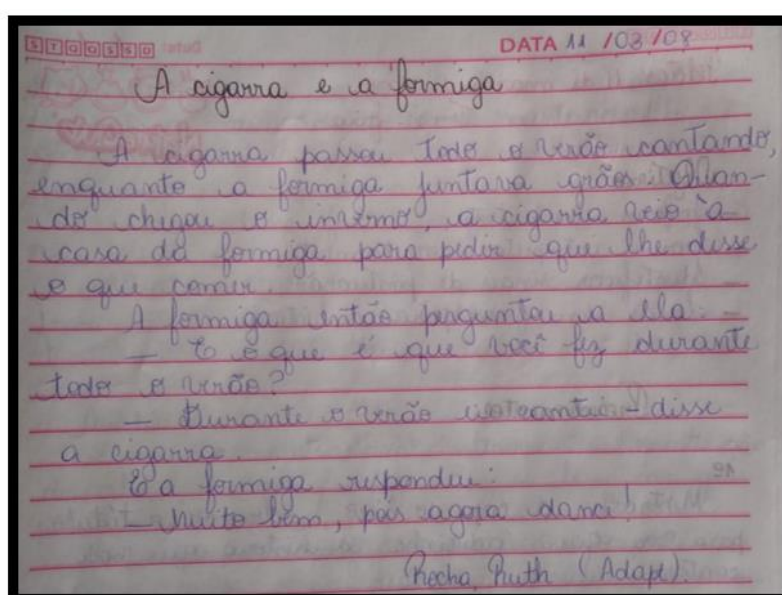 S T Q Q S S D
DATA 11 /03/08
A cigarra e a formiga
A cigarra passou todo o verão cantando,
enquanto a formiga juntava grãos. Quan-
do chegou o inverno, a cigarra veio à
casa da formiga para pedir que lhe desse
o que comer.
A formiga então perguntou a ela:
— E o que é que você fez durante
todo o verão?
— Durante o verão eu cantei – disse
a cigarra.
E a formiga respondeu:
— Muito bem, pois agora dance!
Rocha, Ruth (Adapt).